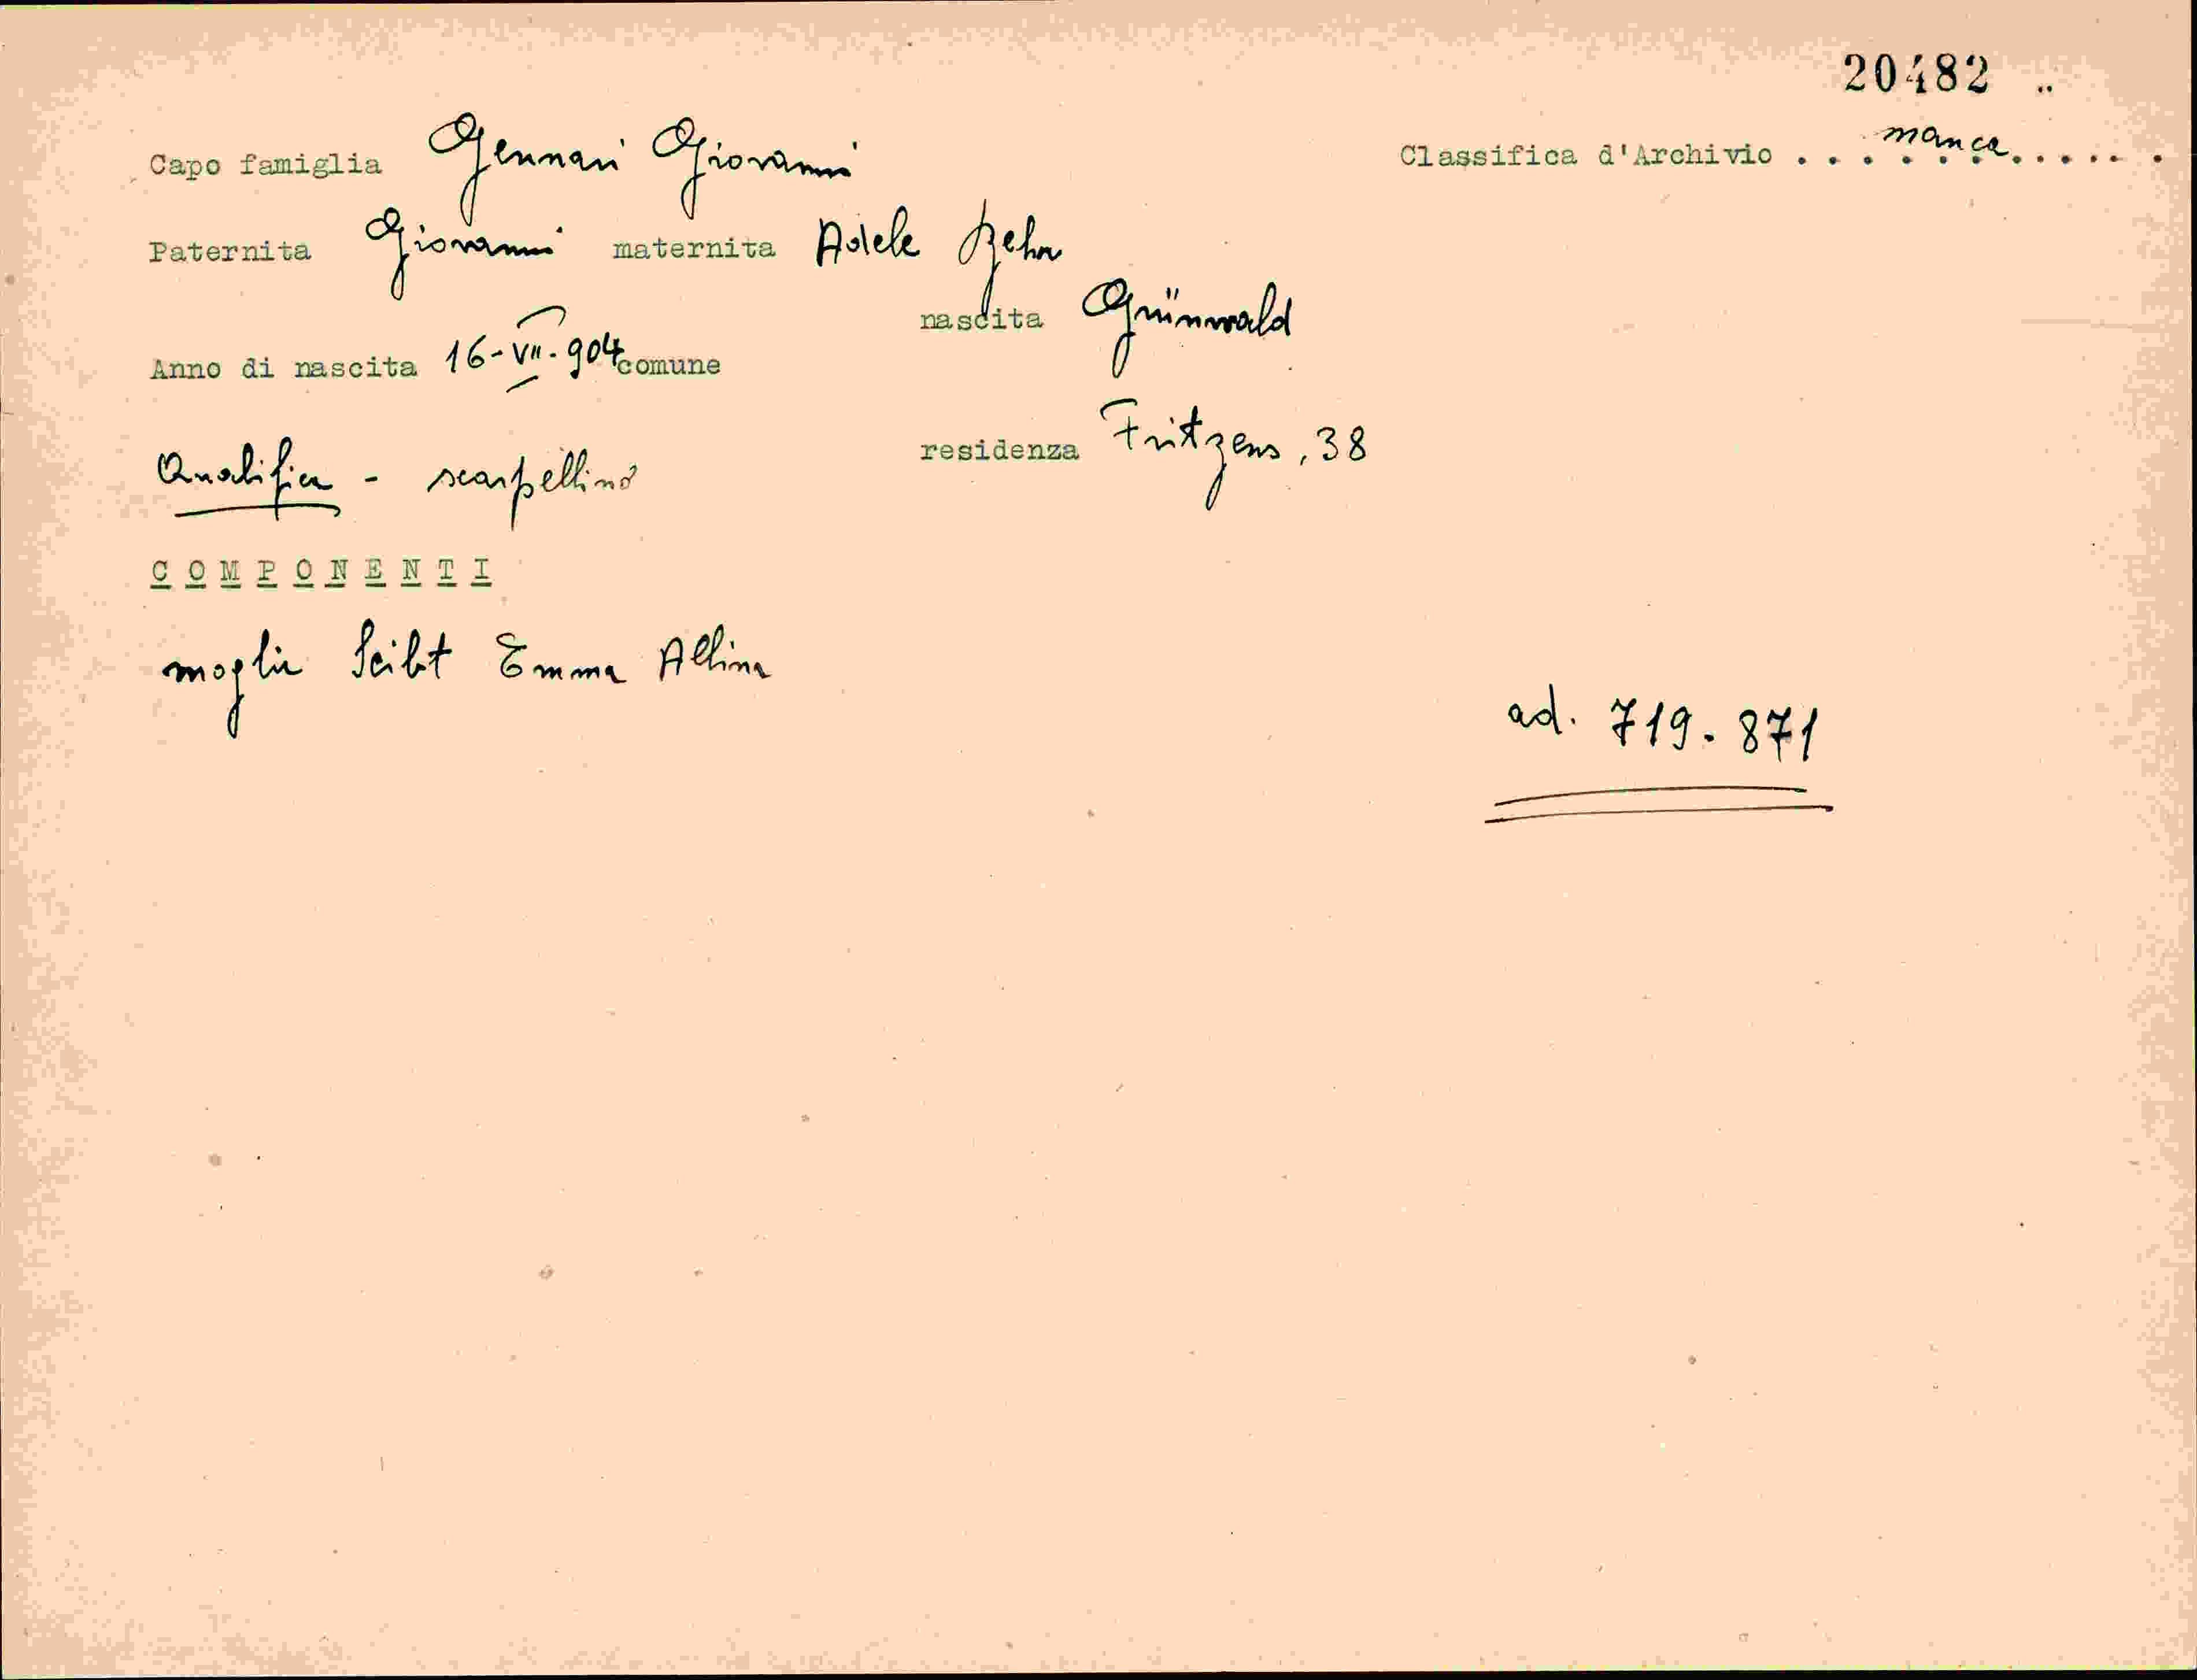 20482 ..
Capo famiglia Gennari Giovanni
Classifica d'Archivio . . . manca . . . . .
Paternita Giovanni maternita Adele Behr
nascita Grünwald
Anno di nascita 16-VII-904 comune
residenza Fritzens, 38
Qualifica - scarpellino
COMPONENTI
moglie Seibt Emma Albina
ad. 719-871